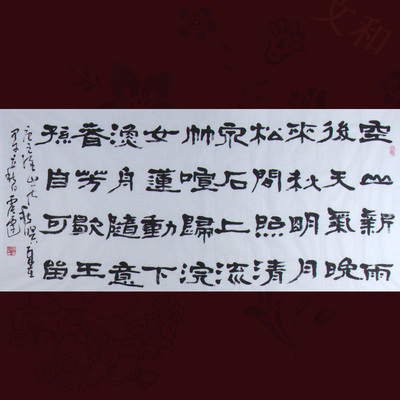 文和
空山新雨
後天氣晚
來秋明月
松間照清
泉石上流
竹喧歸浣
女蓮動下
漁舟隨意
春芳歇王
孫自可留